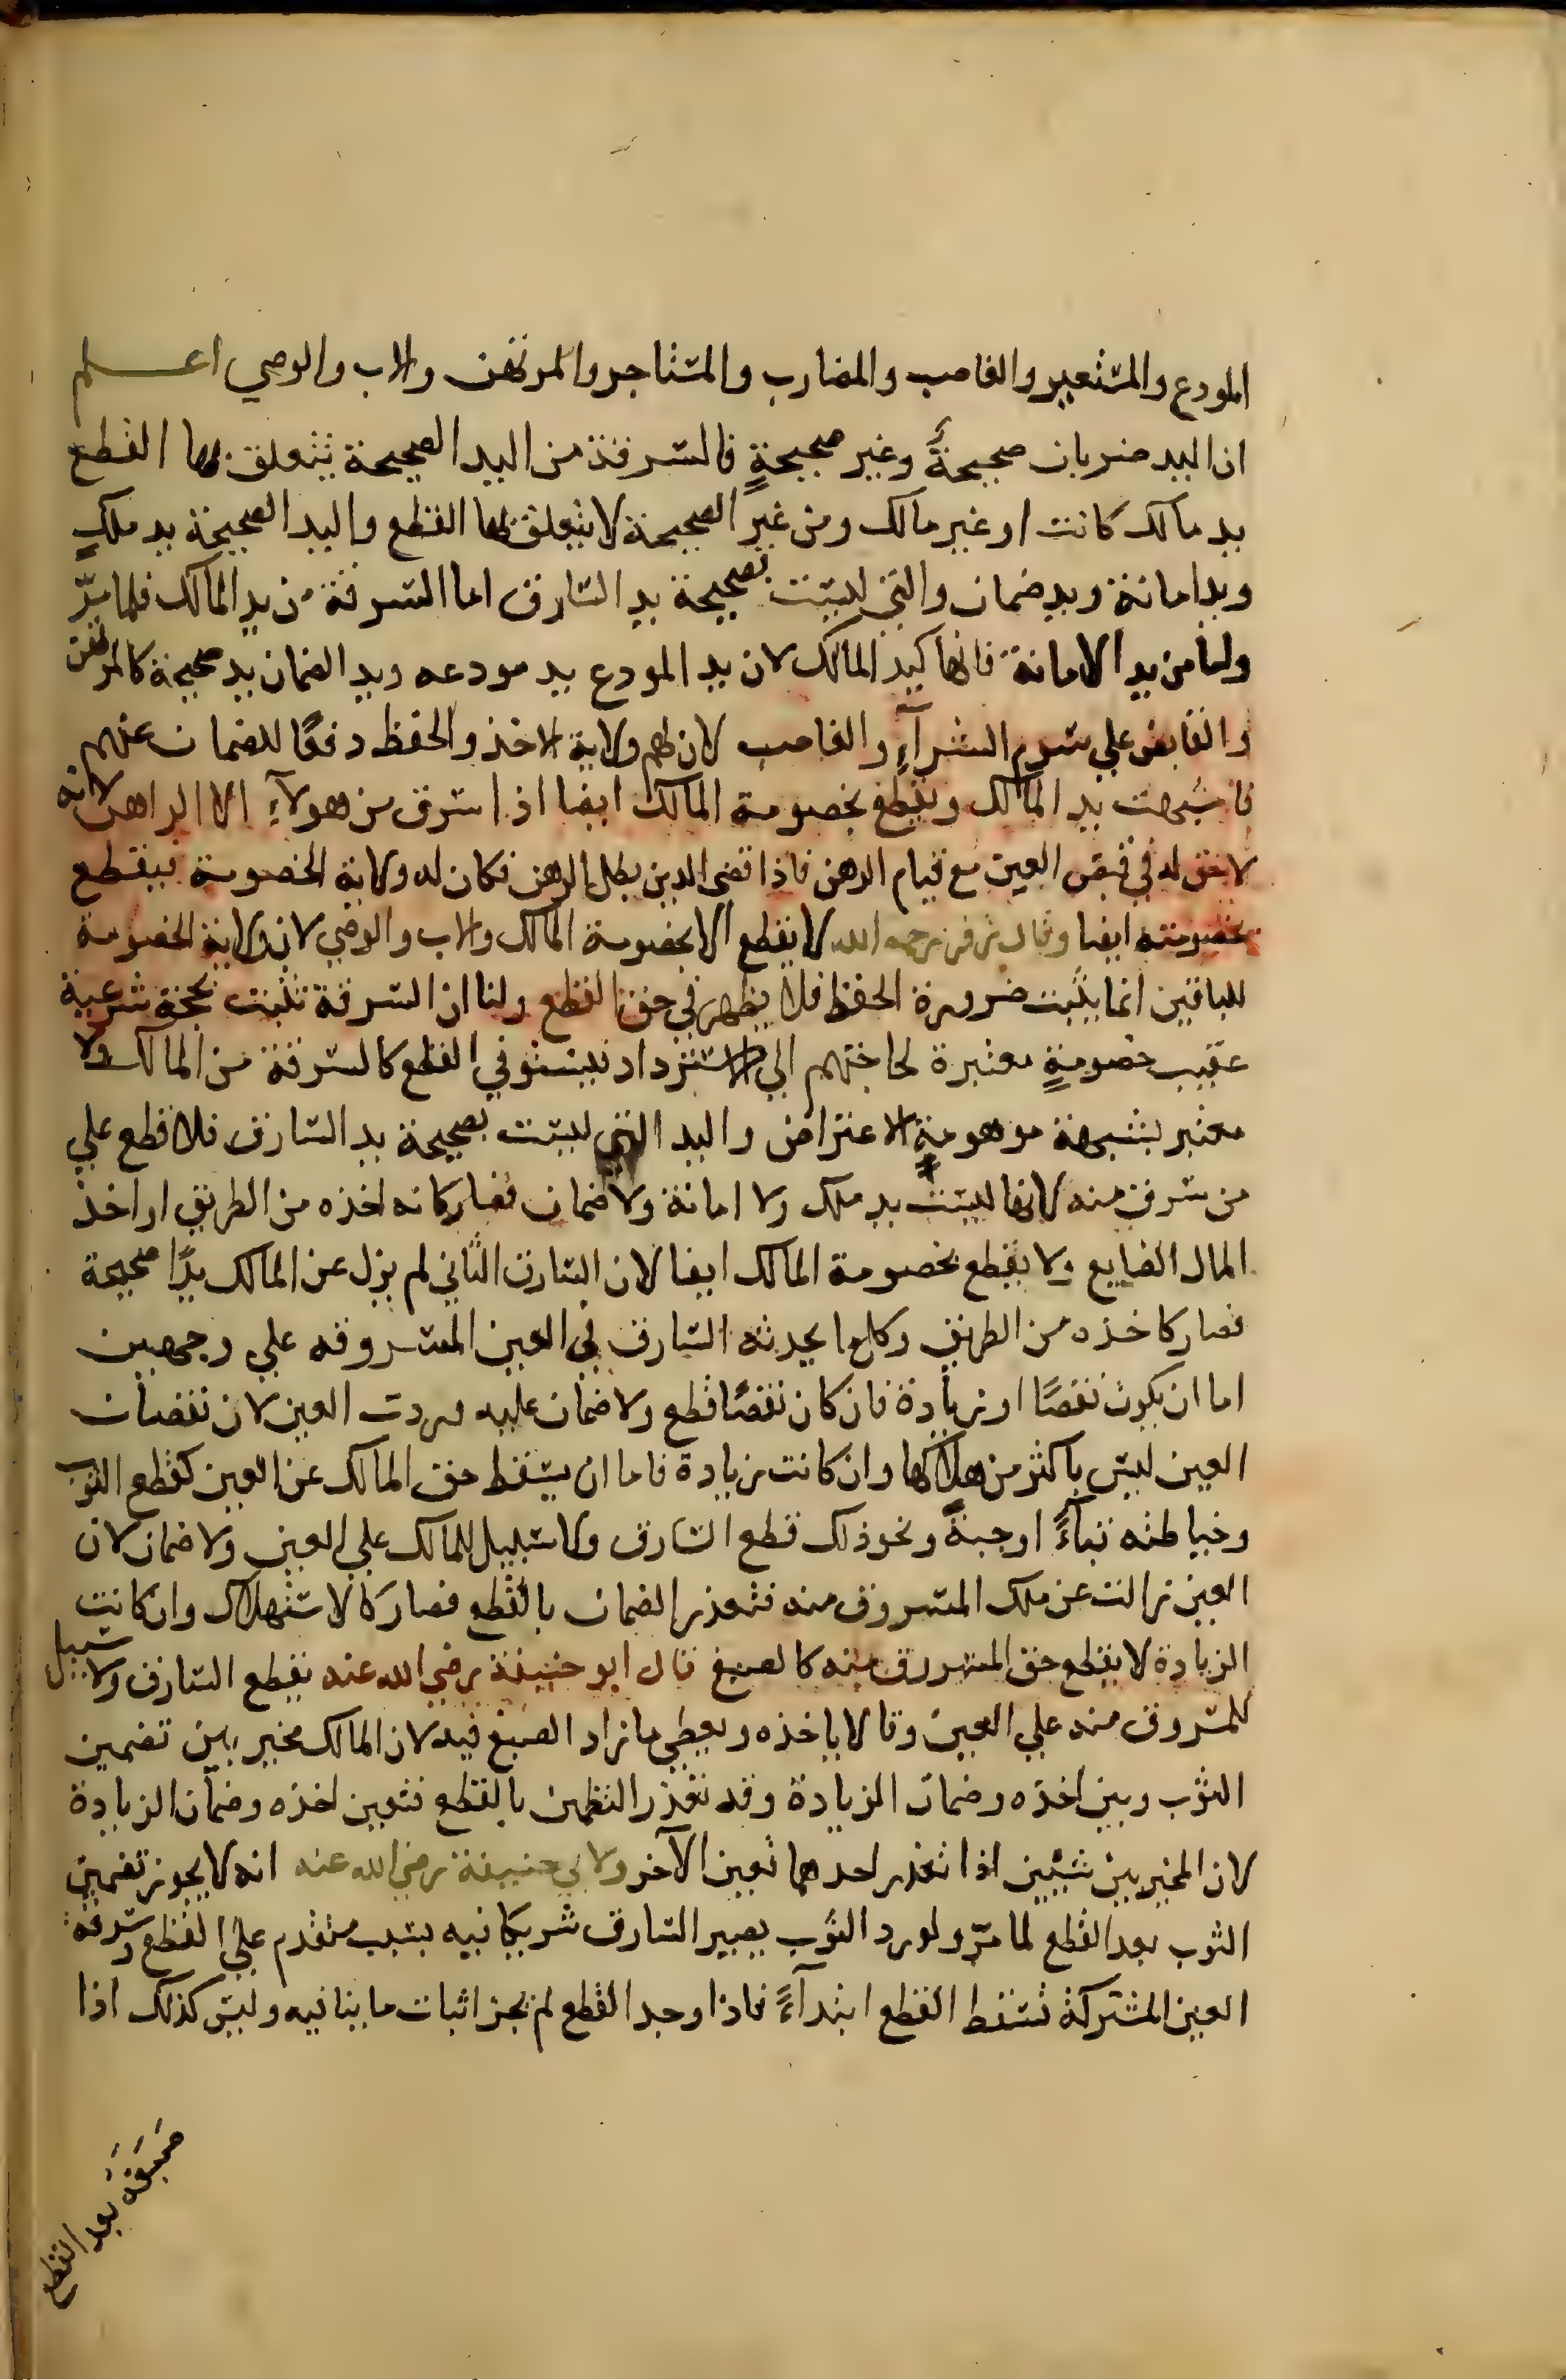 المودع والمستعير والغاصب والمضارب والمستاجر والمرتهن والاب والوصي اعلم
ان اليد ضربان صحيحةً وغير صحيحةٍ فالسرقة من اليد الصحيحة يتعلق بها القطع
يد مالك كانت او غير مالك ومن غير الصحيحة لا يتعلق بها القطع واليد الصحيحة يد ملكٍ
ويد امانة ويد ضمان والتي ليست بصحيحة يد السارق اما السرقة من يد المالك فلما مرّ
واما من يد الامانة فانها كيد المالك لان يد المودع يد مودعه ويد الضمان يد صحيحة كالمرتهن
والقابض علي سوم الشرآءِ والغاصب لان لهم ولاية الاخذ والحفظ دفعًا للضمان عنهم
فاشبهت يد المالك ويقطع بخصومة المالك ايضا اذا سرق من هولآءِ الا الراهن لانه
لا حق له في قبض العين مع قيام الرهن فاذا قضي الدين بطل الرهن فكان له ولاية الخصومة فيقطع
بخصومته ايضا وقال زفر رحمه الله لا يقطع الا بخصومة المالك والاب والوصي لان ولاية الخصومة
للباقين انما يثبت ضرورة الحفظ فلا يظهر في حق القطع ولنا ان السرقة تثبت بحجة شرعية
عقيب خصومةٍ معتبرة لحاجتهم الي الاسترداد فيستوفي القطع كالسرقة من المالك ولا
معتبر بشبهة موهومةٍ الاعتراض واليد التي ليست بصحيحة يد السارق فلا قطع علي
من سرق منه لانها ليست يد ملك ولا امانة ولا ضمان فصار كانه اخذه من الطريق او اخذ
المال الضايع ولا يقطع بخصومة المالك ايضا لان السارق الثاني لم يزل عن المالك يدًا صحيحة
فصار كاخذه من الطريق وكل ما يحدثه السارق في العين المسروقه علي وجهين
اما ان يكون نقصًا او زيادة فان كان نقصًا قطع ولا ضمان عليه وردت العين لان نقصان
العين ليس باكثر من هلاكها وان كانت زيادة فاما ان يسقط حق المالك عن العين كقطع الثوب
وخياطته قبآءً او جبةً ونحو ذلك قطع السارق ولا سبيل للمالك علي العين ولا ضمان لان
العين زالت عن ملك المسروق منه فتعذر الضمان بالقطع فصار كالاستهلاك وان كانت
الزيادة لا يقطع حق المسروق منه كالصبغ قال ابو حنيفة رضي الله عنه يقطع السارق ولا سبيل
للمسروق منه علي العين وقالا ياخذه ويعطي ما زاد الصبغ فيه لان المالك مخير بين تضمين
الثوب وبين اخذه وضمان الزيادة وقد تعذر التظمين بالقطع فتعين اخذه وضمان الزيادة
لان المخير بين شيئين اذا تعذر احدهما تعين الآخر ولابي حنيفة رضي الله عنه انه لا يجوز تضمين
الثوب بعد القطع لما مرّ ولو رد الثوب يصير السارق شريكا فيه بسبب متقدم علي القطع وسرقة
العين المشتركة تسقط القطع ابتدآءً فاذا وجد القطع لم يجز اثبات ما ينافيه وليس كذلك اذا
صَبَغَهُ بعد القطع